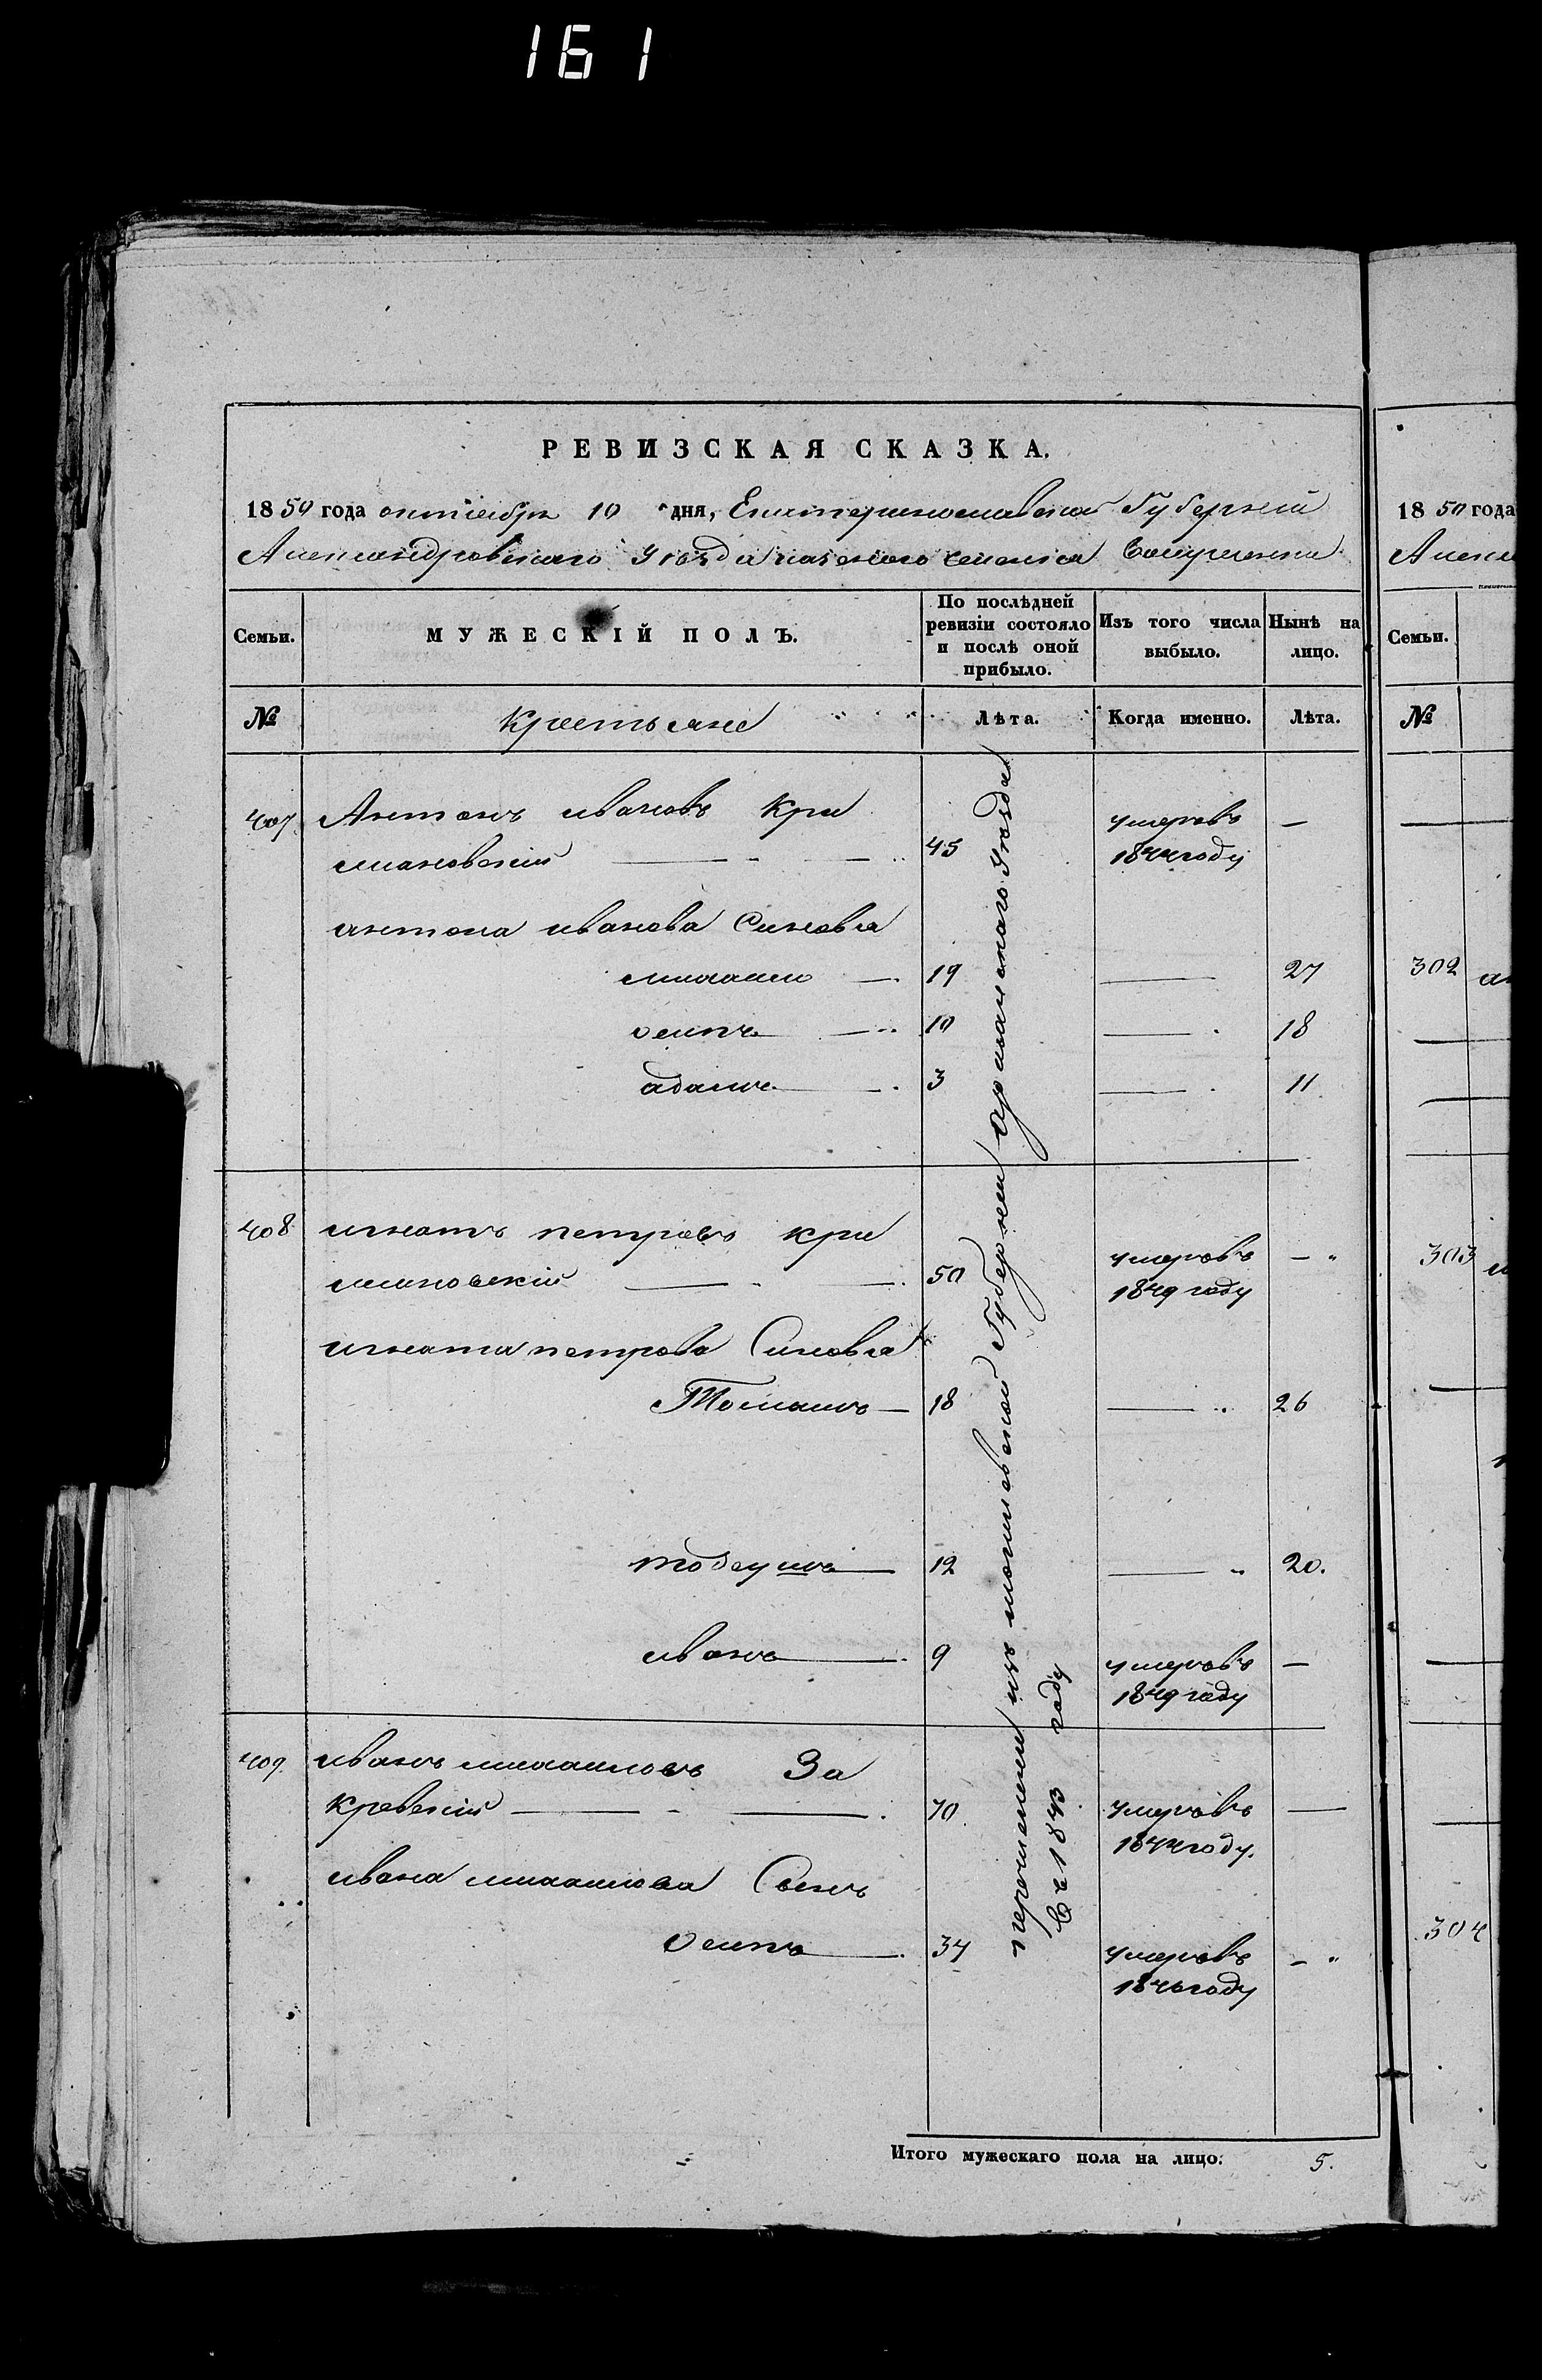 161
РЕВИЗСКАЯ СКАЗКА.
1850 года октября 10 дня, Екатеринославской Губерніи
Александровскаго Уезда казенаго селенія
Семьи.
МУЖЕСКІЙ ПОЛЪ.
По послѣдней ревизіи состояло и послѣ оной прибыло.
Изъ того числа выбыло.
Нынѣ на лицо.
№
Крестьяне
Лѣта.
Когда именно.
Лѣта.
407 Антонъ ивановъ Кри
мановский 45 умеръ въ 1844 году —
антона иванова Синовья
михаило — 19 — 27
осипъ — 10 — 18
адамъ — 3 — 11
408 игнатъ петровъ кри
мановскій 50 умеръ въ 1849 году —
игната петрова Синовья
Томашъ — 18 — 26
тодеушъ — 12 — 20.
иванъ — 9 умеръ въ 1849 году —
409. иванъ михаиловъ За
кревскій 70 умеръ въ 1844 году. —
ивана михаилова Сынъ
осипъ 34 умеръ въ 1846 году —
перечислени изъ могилевской Губернии аршанскаго Уезда
Съ 1843 году
Итого мужескаго пола на лицо: 5.
1850 года
Семьи.
№
302
303
304